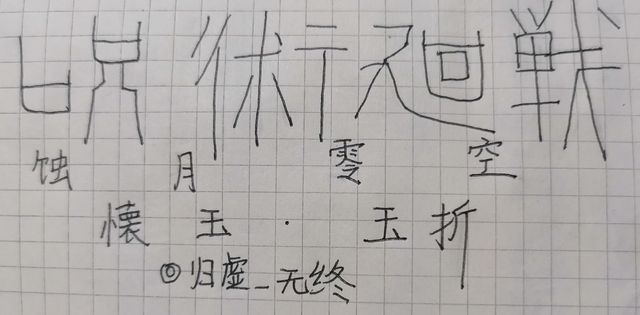 咒術廻戦
蚀月零空
懐玉·玉折
◎归虚_无终